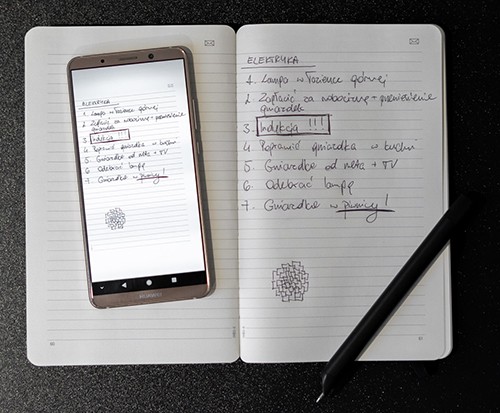 ELEKTRYKA
1. Lampa w łazience górnej
2. Zapłacić za + przeniesienie
gniazdek
3. Indukcja !!!
4. Poprawić gniazdka w kuchni
5. Gniazdko od neta + TV
6. Odebrać lampę
7. Gniazdko w piwnicy!
HUAWEI
ELEKTRYKA
1. Lampa w łazience górnej
2. Zapłacić za + przeniesienie
gniazdek
3. Indukcja !!!
4. Poprawić gniazdka w kuchni
5. Gniazdko od neta + TV
6. Odebrać lampę
7. Gniazdko w piwnicy!